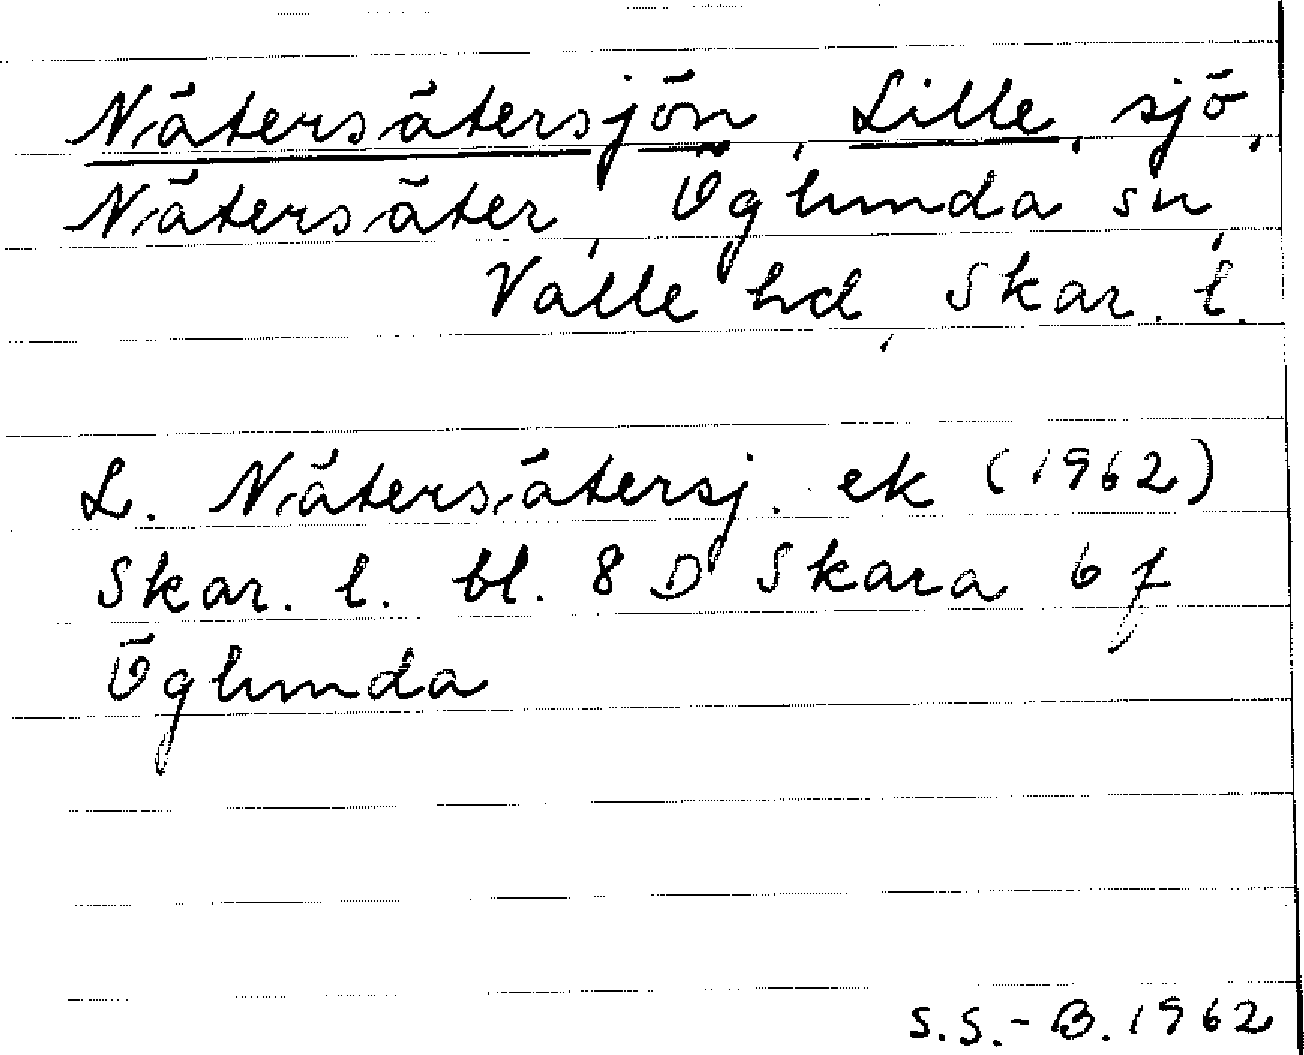 Nätersätersjön, Lille, sjö,
Nätersäter, Öglunda sn,
Valle hd, Skar. l.
L. Nätersätersj. ek (1962)
Skar. l. bl. 8 D Skara 6 f
Öglunda
S.S.-B. 1962